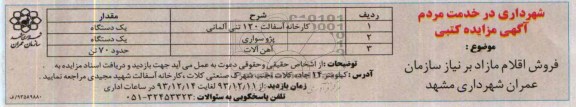 شهرداری در خدمت مردم
آگهی مزایده کتبی
موضوع :
فروش اقلام مازاد بر نیاز سازمان
عمران شهرداری مشهد
ردیف شرح مقدار
۱ کارخانه آسفالت ۱۲۰ تنی آلمانی یک دستگاه
۲ پژو سواری یک دستگاه
۳ آهن آلات حدود ۷۰ تن
توضیحات: از اشخاص حقیقی و حقوقی دعوت به عمل می آید جهت بازدید و دریافت اسناد مزایده به
آدرس: کیلومتر ۱۴ جاده کلات نجف شهرک صنعتی کلات، کارخانه آسفالت شهید مجیدی مراجعه نمایید.
از تاریخ: ۹۳/۱۲/۱۱ لغایت ۹۳/۱۲/۱۴ در ساعات اداری
تلفن پاسخگویی به سئوالات: ۳۲۴۵۳۳۲۳-۰۵۱
سازمان عمران
۹۳۵۸۹۸۸۰/ف